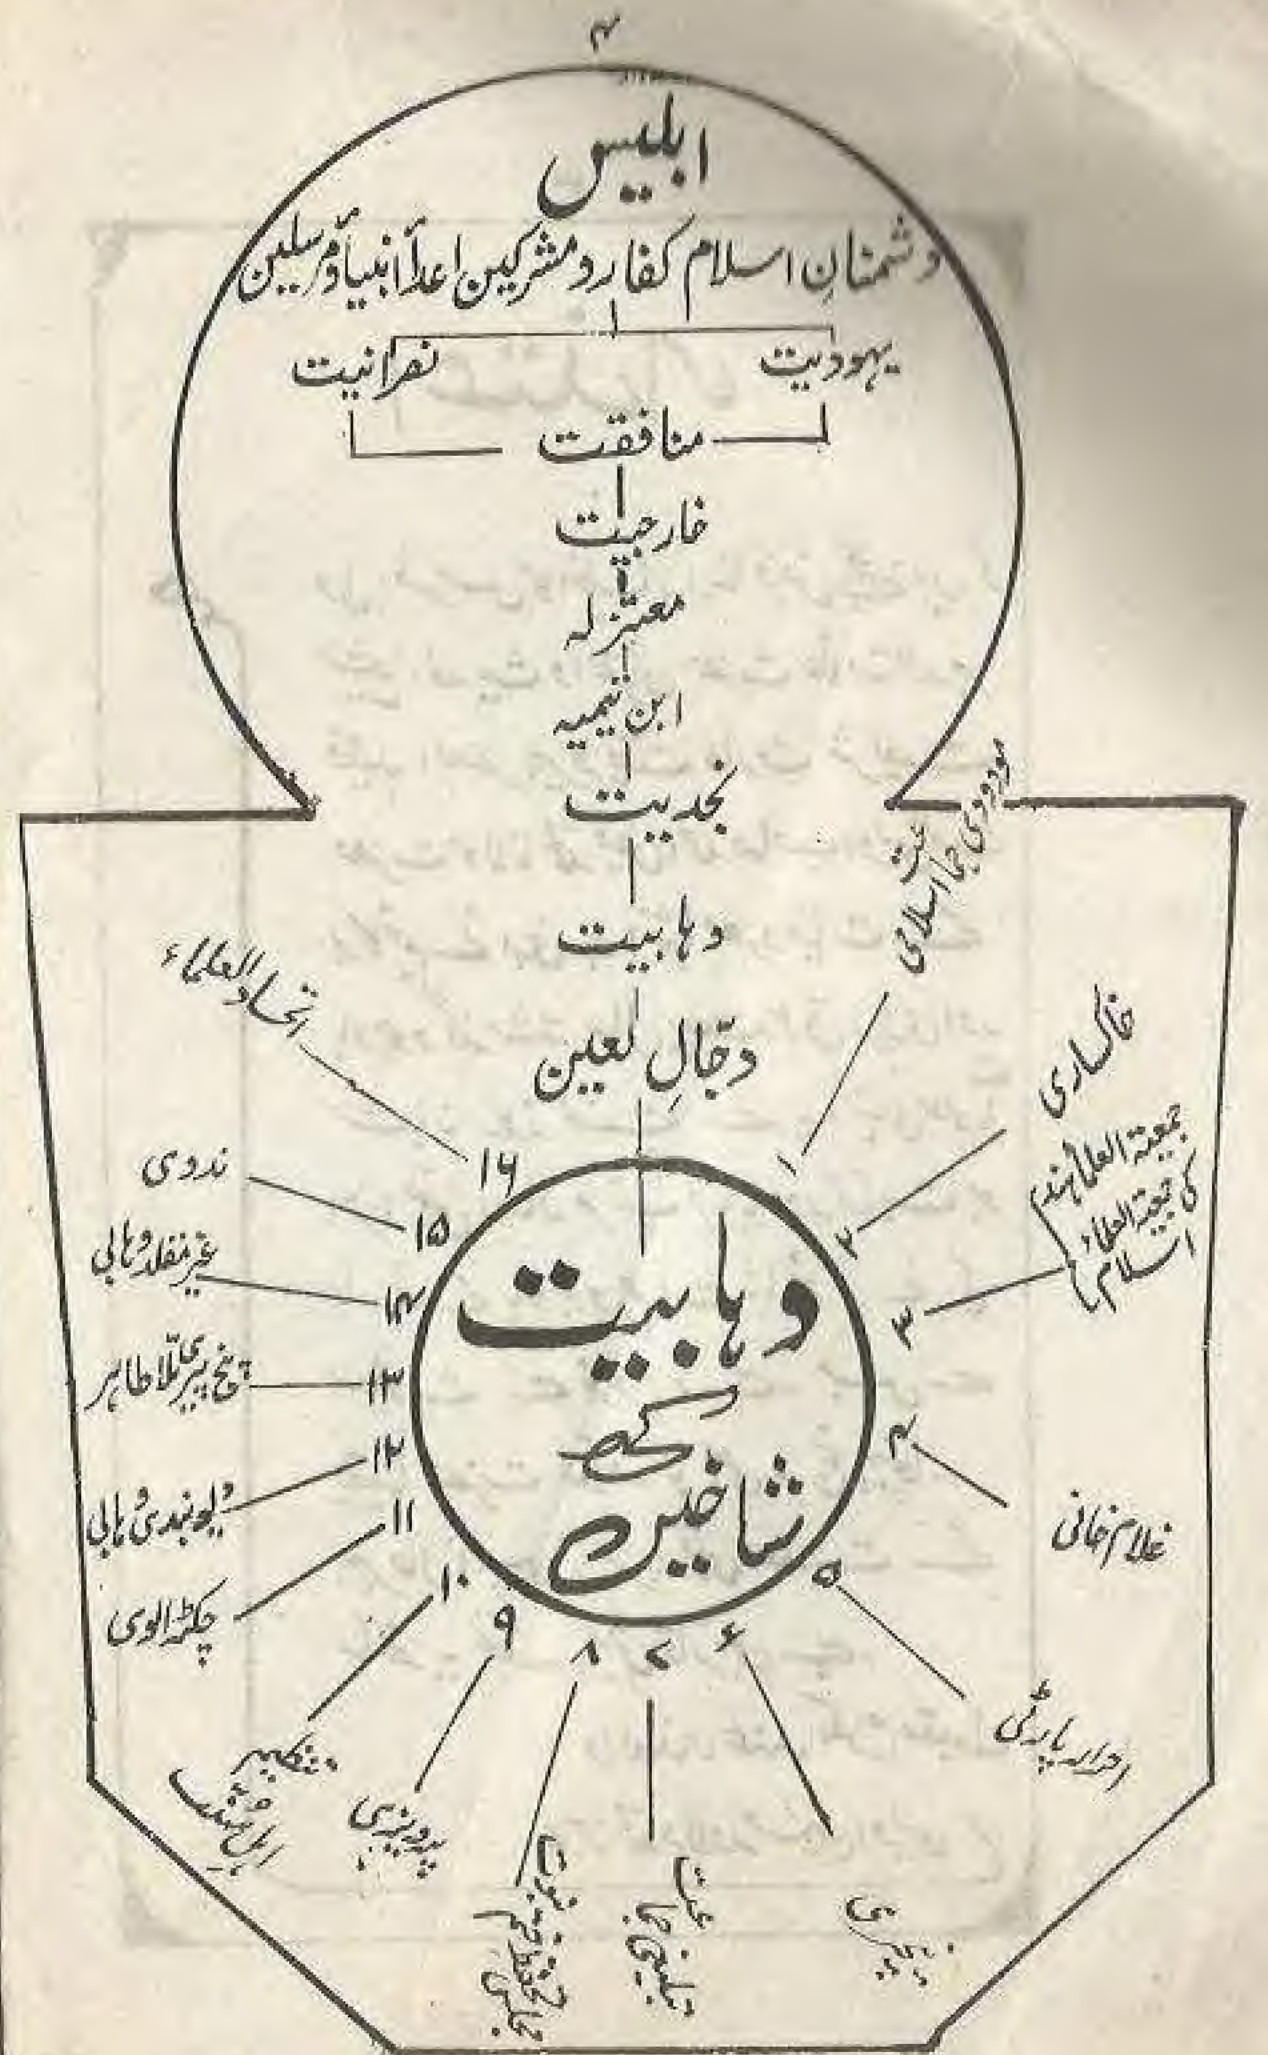 ۴
ابلیس
دشمنانِ اسلام کفار و مشرکین اعدأ انبیأ و مرسلین
یہودیت
نصرانیت
منافقت
خارجیت
معتزلہ
ابن تیمیہ
نجدیت
وہابیت
دجّالِ لعین
وہابیت
کی
شاخیں
۱
مودودی جماعت اسلامی
۲
خاکساری
۳
جمعیۃ العلمأ ہند
کی جمعیۃ العلماء
اسلام
۴
غلام خانی
۵
احرار پارٹی
۶
نیچری
۷
تبلیغی جماعت
۸
مجلس تحفظ ختم نبوت
۹
پرویزی
۱۰
تنظیم
اہل سنّت
۱۱
چکڑالوی
۱۲
دیوبندی وہابی
۱۳
پنج پیری ملّا طاہر
۱۴
غیر مقلد وہابی
۱۵
ندوی
۱۶
اتحاد العلماء